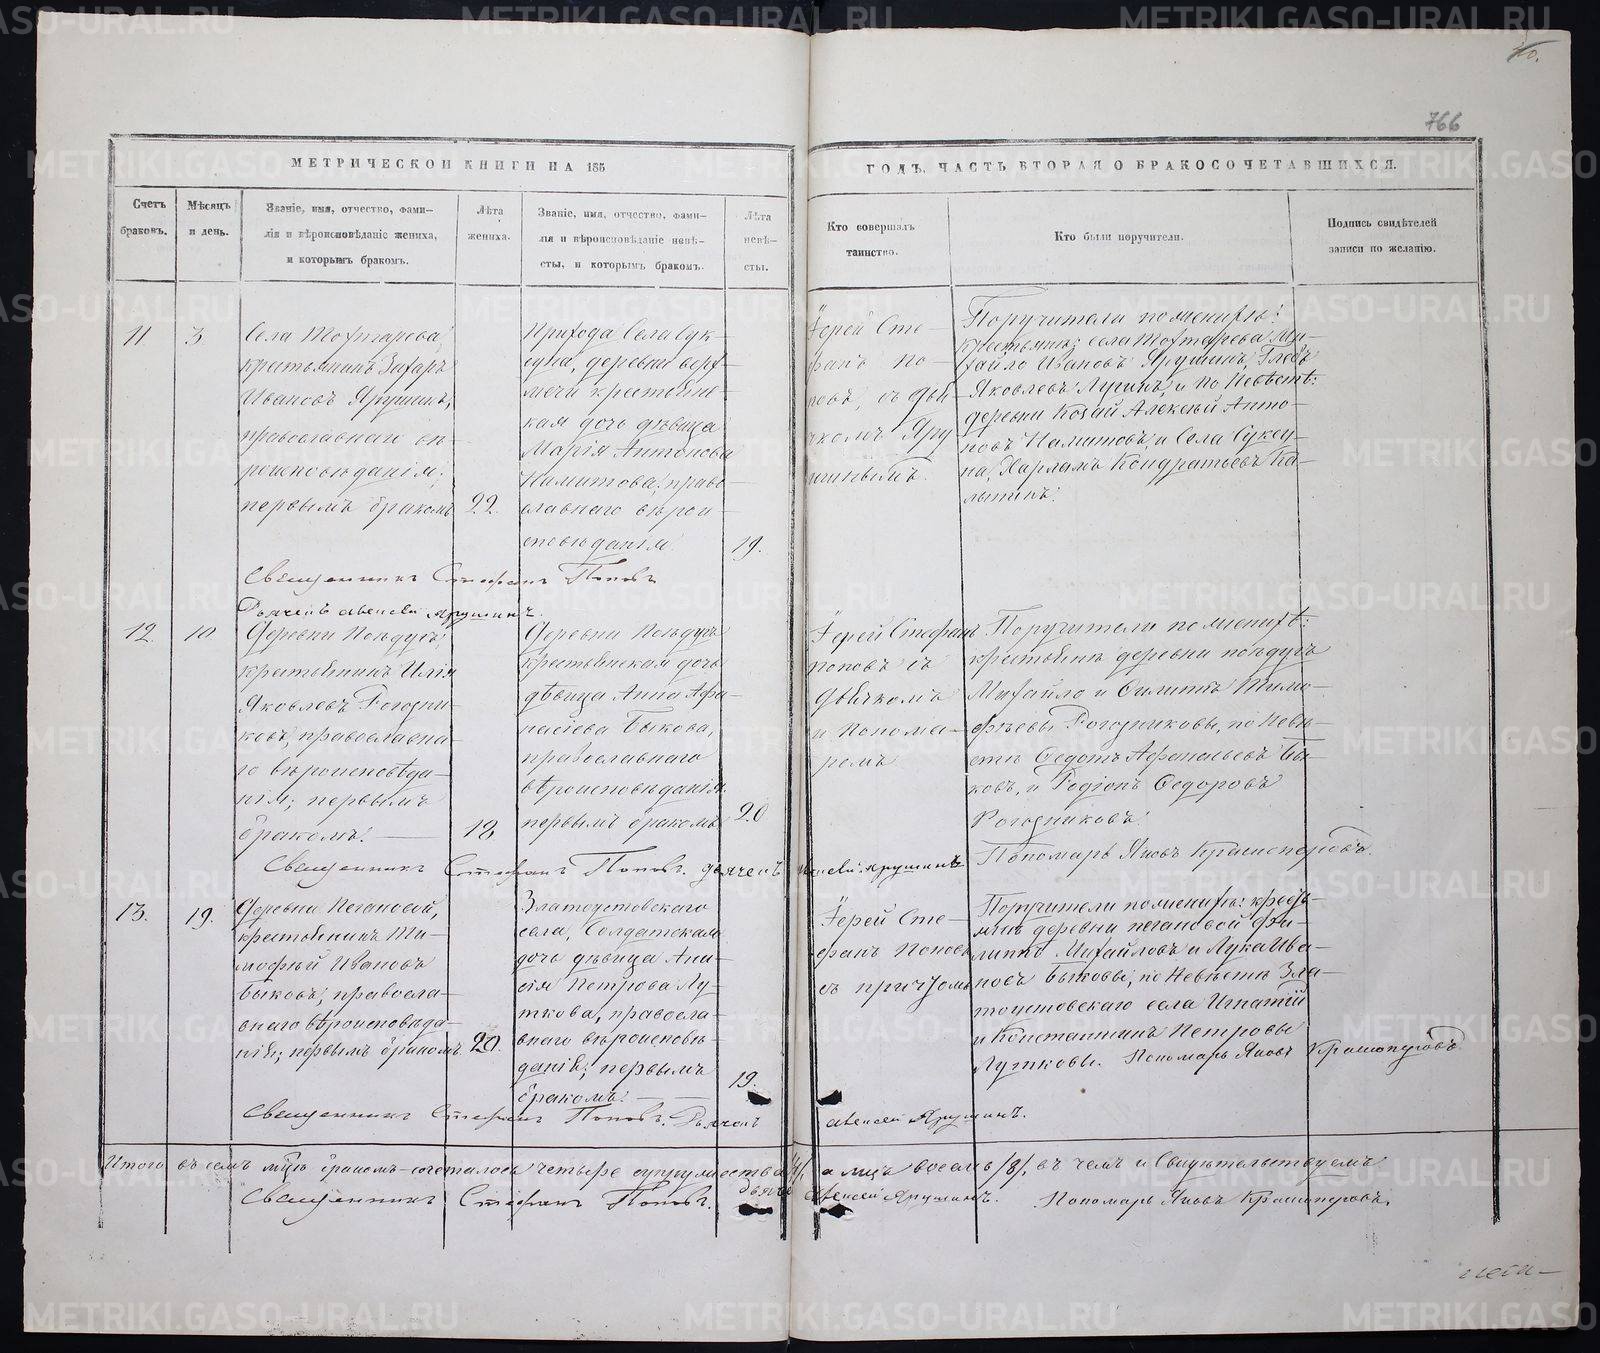 766
МЕТРИЧЕСКОЙ КНИГИ НА 185
ГОДЪ, ЧАСТЬ ВТОРАЯ О БРАКОСОЧЕТАВШИХСЯ.
Счетъ браковъ.
Мѣсяцъ и день.
Званіе, имя, отчество, фами-
лія и вѣроисповѣданіе жениха,
и которымъ бракомъ.
Лѣта
жениха.
Званіе, имя, отчество, фами-
лія и вѣроисповѣданіе невѣ-
сты, и которымъ бракомъ.
Лѣта
невѣ-
сты.
Кто совершалъ
таинство.
Кто были поручители.
Подпись свидѣтелей
записи по желанію.
11
3
Села Тохтарева
крестьянинъ Захаръ
Ивановъ Ярушинъ,
православнаго вѣ-
роисповѣданія,
первымъ бракомъ
22
Прихода Села Сук-
суна, деревни
крестьянс-
кая дочь дѣвица
Марія Антонова
право-
славнаго вѣрои-
сповѣданія
19.
Іерей Сте-
фанъ По-
повъ, съ дья-
чкомъ Яру-
шинымъ.
Поручители по женихѣ:
крестьянинъ села Тохтарева Ми-
хайло Ивановъ Ярушинъ, Глебъ
Яковлевъ и по Невѣстѣ:
деревни Алексѣй Анто-
новъ и Села Суксу-
на, Харламъ Кондратьевъ Ка-
Священникъ Стефанъ Поповъ
Дьячекъ Алексей Ярушинъ.
12.
10.
Деревни
крестьянинъ Илія
Яковлевъ Рогозни-
ковъ, православна-
го вѣроисповѣда-
нія; первымъ
бракомъ.
18
Деревни
крестьянская дочь
дѣвица Анна Афа-
насіева Быкова,
православнаго
вѣроисповѣданія
первымъ бракомъ
20
Іерей Стефанъ
Поповъ съ
Дьячкомъ
и Понома-
ремъ
Поручители по женихѣ:
крестьяне деревни
Михайло и Филиппъ Тимо-
фѣевы Рогозниковы, по Невѣ-
стѣ Федотъ Афанасьевъ Бы-
ковъ, и Родіонъ Федоровъ
Рогозниковъ.
Священникъ Стефанъ Поповъ. Дьячекъ Алексей Ярушинъ
Пономарь Яковъ Красноперовъ.
13.
19.
Деревни Пегановой,
крестьянинъ Ти-
мофѣй Ивановъ
Быковъ, правосла-
внаго вѣроисповѣда-
нія; первымъ бракомъ.
20.
Златоустовскаго
села, Солдатская
дочь дѣвица Ани-
сія Петрова Лу-
ткова, правосла-
внаго вѣроисповѣ-
данія; первымъ
бракомъ.
19.
Іерей Сте-
фанъ Поповъ
съ причтомъ
Поручители по женихѣ: кресть-
яне деревни Пегановой Фи-
липпъ Михайловъ и Лука Ива-
новъ Быковы, по Невѣстѣ Зла-
тоустовскаго села Игнатій
и Константинъ Петровы
Лутковы. Пономарь Яковъ Красноперовъ
Священникъ Стефанъ Поповъ. Дьячекъ Алексей Ярушинъ.
Итого въ семъ мѣсяцѣ бракомъ сочеталось четыре супружества /4/, а лицъ восемь /8/, въ чемъ и Свидѣтельствуемъ
Священникъ Стефанъ Поповъ. Дьячекъ Алексей Ярушинъ. Пономарь Яковъ Красноперовъ.
METRIKI.GASO-URAL.RU